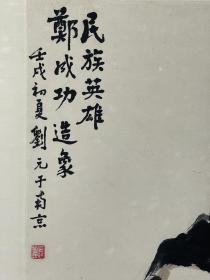 民族英雄
鄭成功造象
壬戌初夏劉元于南京